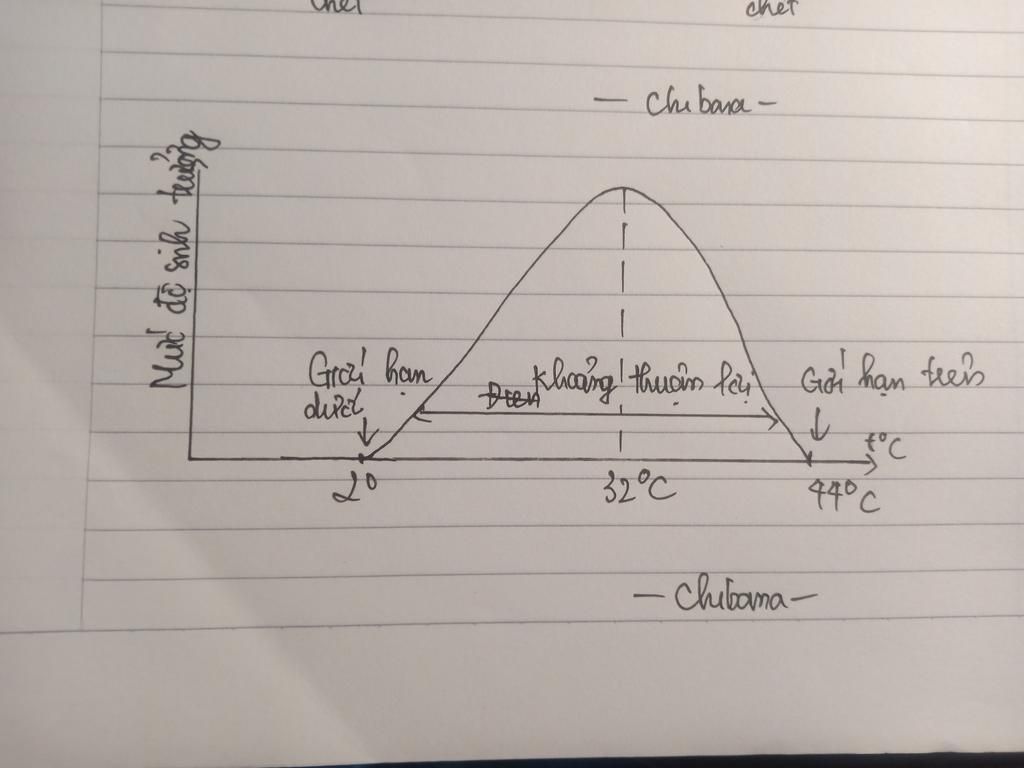 chết chết
- Chibana -
Mức độ sinh trưởng
Giới hạn
dưới
Khoảng thuận lợi
Giới hạn trên
t°C
2°
32°C
44°C
- Chibana -